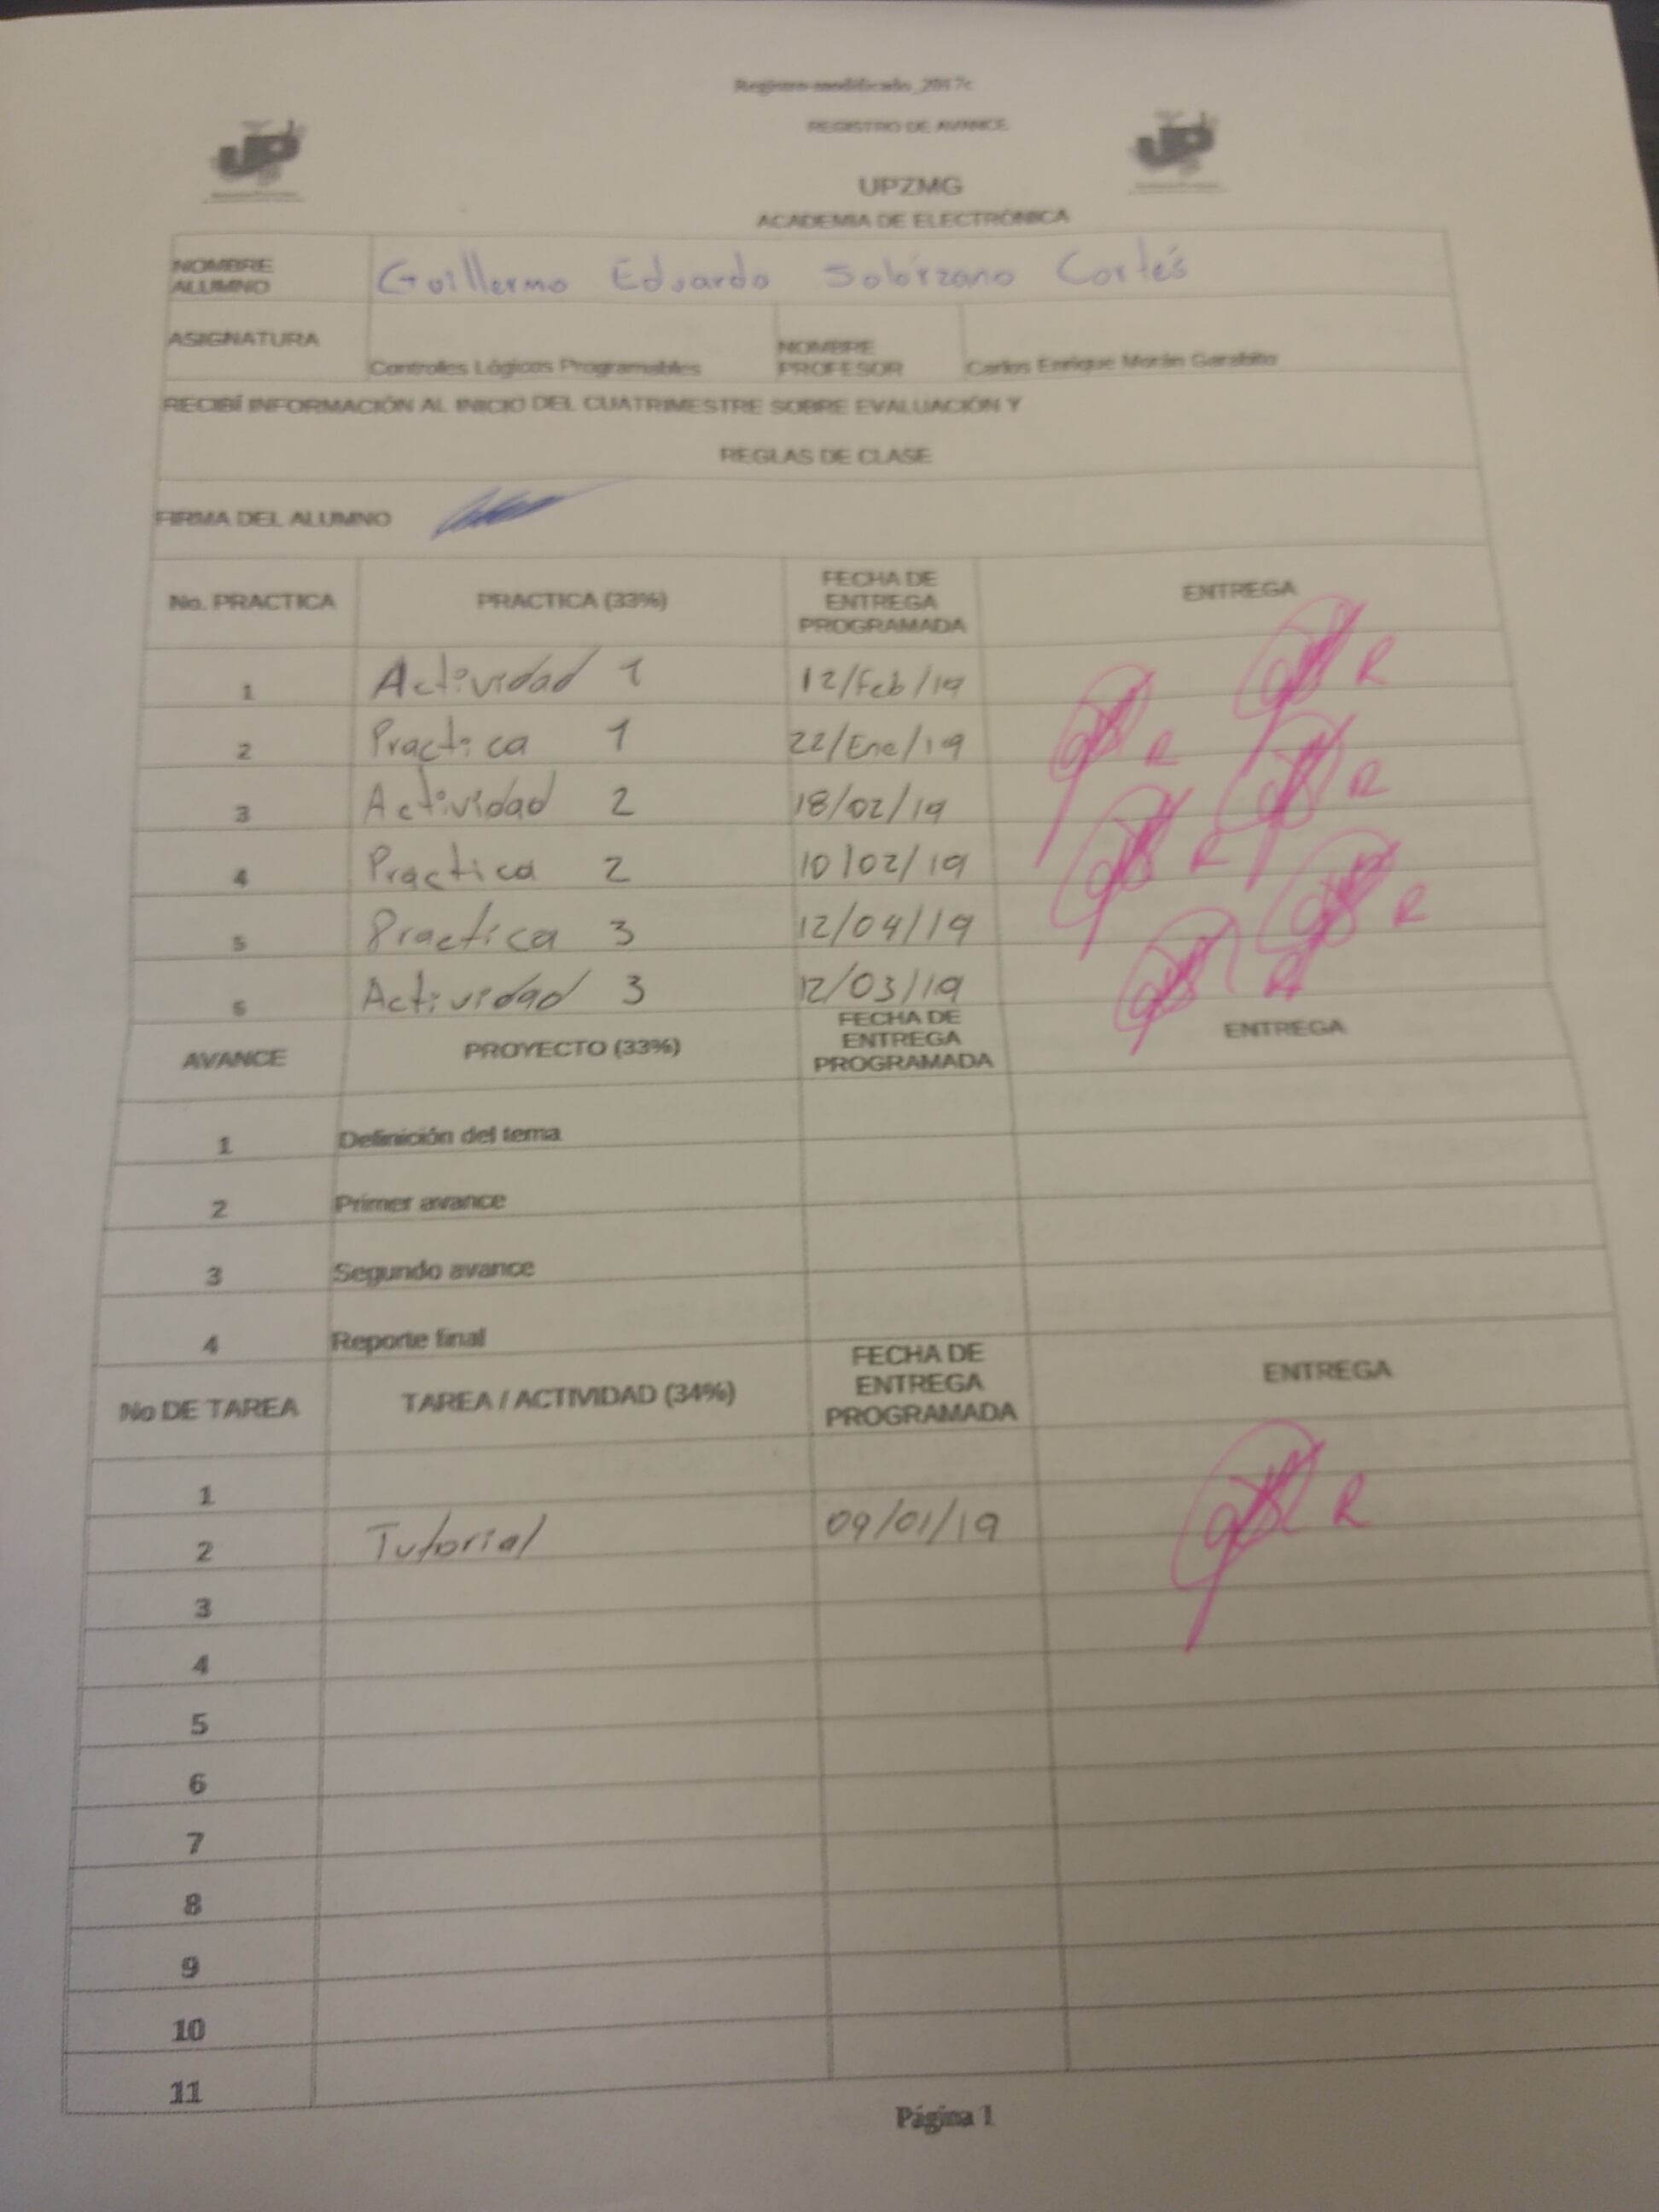 Registro modificado_2017c
REGISTRO DE AVANCE
UPZMG
ACADEMIA DE ELECTRÓNICA
NOMBRE ALUMNO Guillermo Eduardo Solórzano Cortés
ASIGNATURA Controles Lógicos Programables NOMBRE PROFESOR Carlos Enrique Morán Garabito
RECIBÍ INFORMACIÓN AL INICIO DEL CUATRIMESTRE SOBRE EVALUACIÓN Y
REGLAS DE CLASE
FIRMA DEL ALUMNO
No. PRACTICA PRACTICA (33%) FECHA DE ENTREGA PROGRAMADA ENTREGA
1 Actividad 1 12/Feb/19 R
2 Practica 1 22/Ene/19 R
3 Actividad 2 18/02/19 R
4 Practica 2 10/02/19 R
5 Practica 3 12/04/19 R
6 Actividad 3 12/03/19 R
AVANCE PROYECTO (33%) FECHA DE ENTREGA PROGRAMADA ENTREGA
1 Definición del tema
2 Primer avance
3 Segundo avance
4 Reporte final
No DE TAREA TAREA / ACTIVIDAD (34%) FECHA DE ENTREGA PROGRAMADA ENTREGA
1
2 Tutorial 09/01/19 R
3
4
5
6
7
8
9
10
11
Página 1